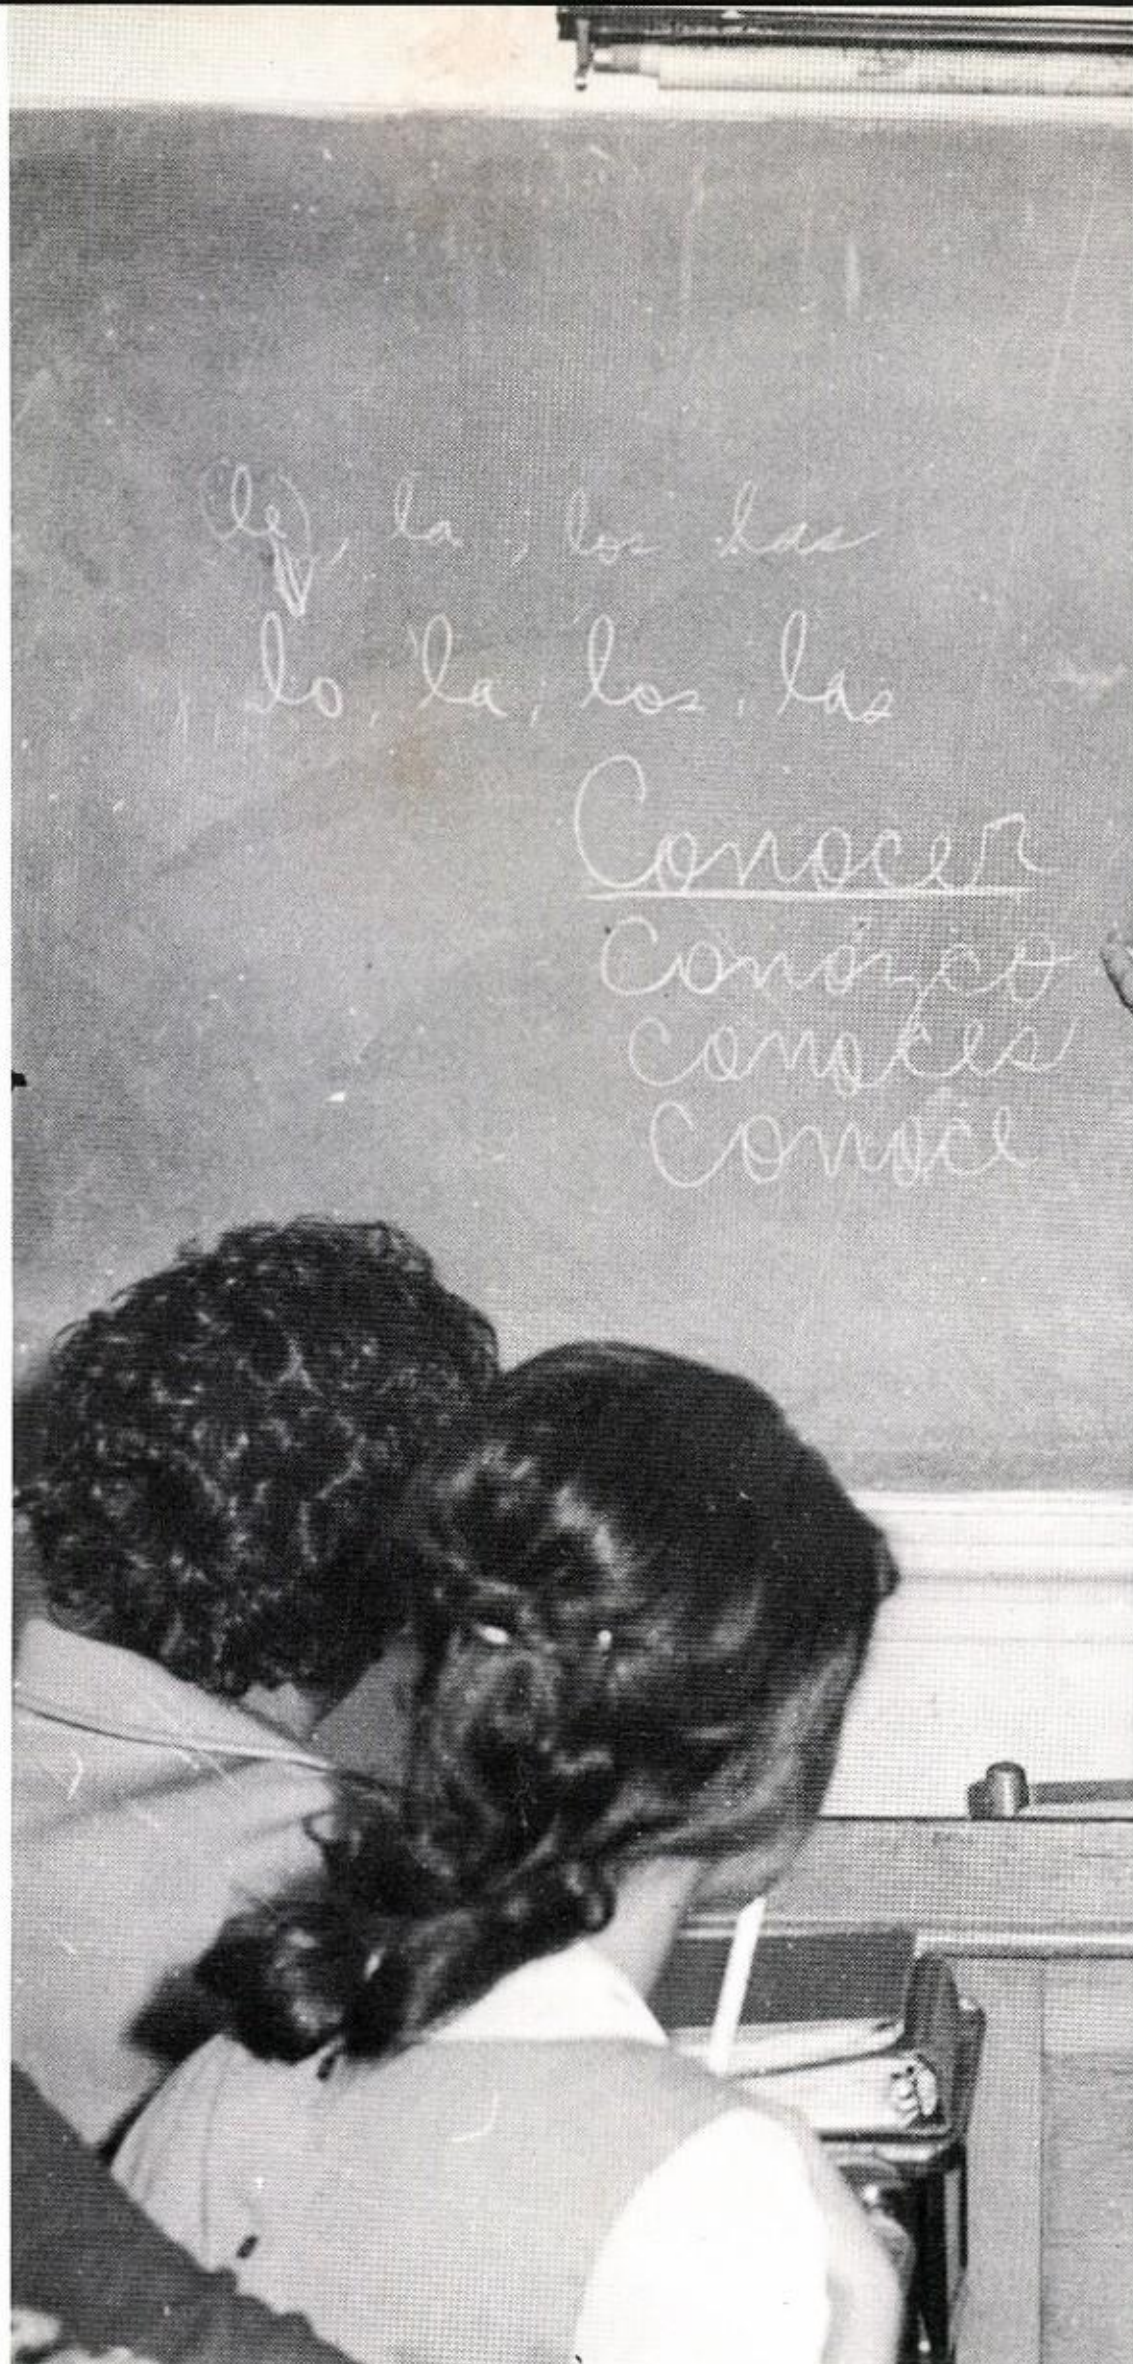 le, la, los las
lo, la, los, las
Conocer
Conozco
conoces
Conoce